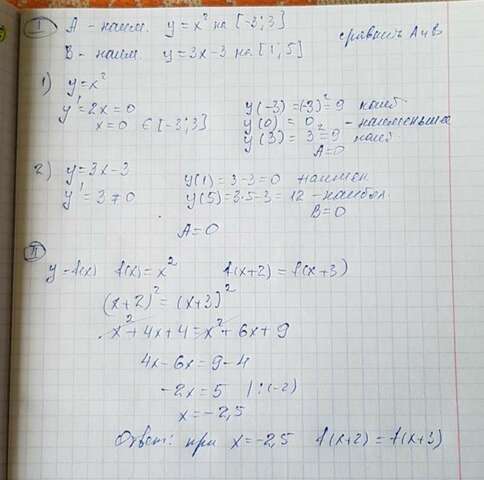 I A - наим. y = x² на [-3;3]
сравнить A и B
B - наим. y = 3x - 3 на [1,5]
1) y = x²
y' = 2x = 0
x = 0 ∈ [-3;3]
y(-3) = (-3)² = 9 наиб
y(0) = 0 - наименьшее
y(3) = 3² = 9 наиб
A = 0
2) y = 3x - 3
y' = 3 ≠ 0
y(1) = 3 - 3 = 0 наимен
y(5) = 3·5 - 3 = 12 - наибол
B = 0
A = 0
II
y = f(x) f(x) = x² f(x+2) = f(x+3)
(x+2)² = (x+3)²
x² + 4x + 4 = x² + 6x + 9
4x - 6x = 9 - 4
-2x = 5 | : (-2)
x = -2,5
Ответ: при x = -2,5 f(x+2) = f(x+3)